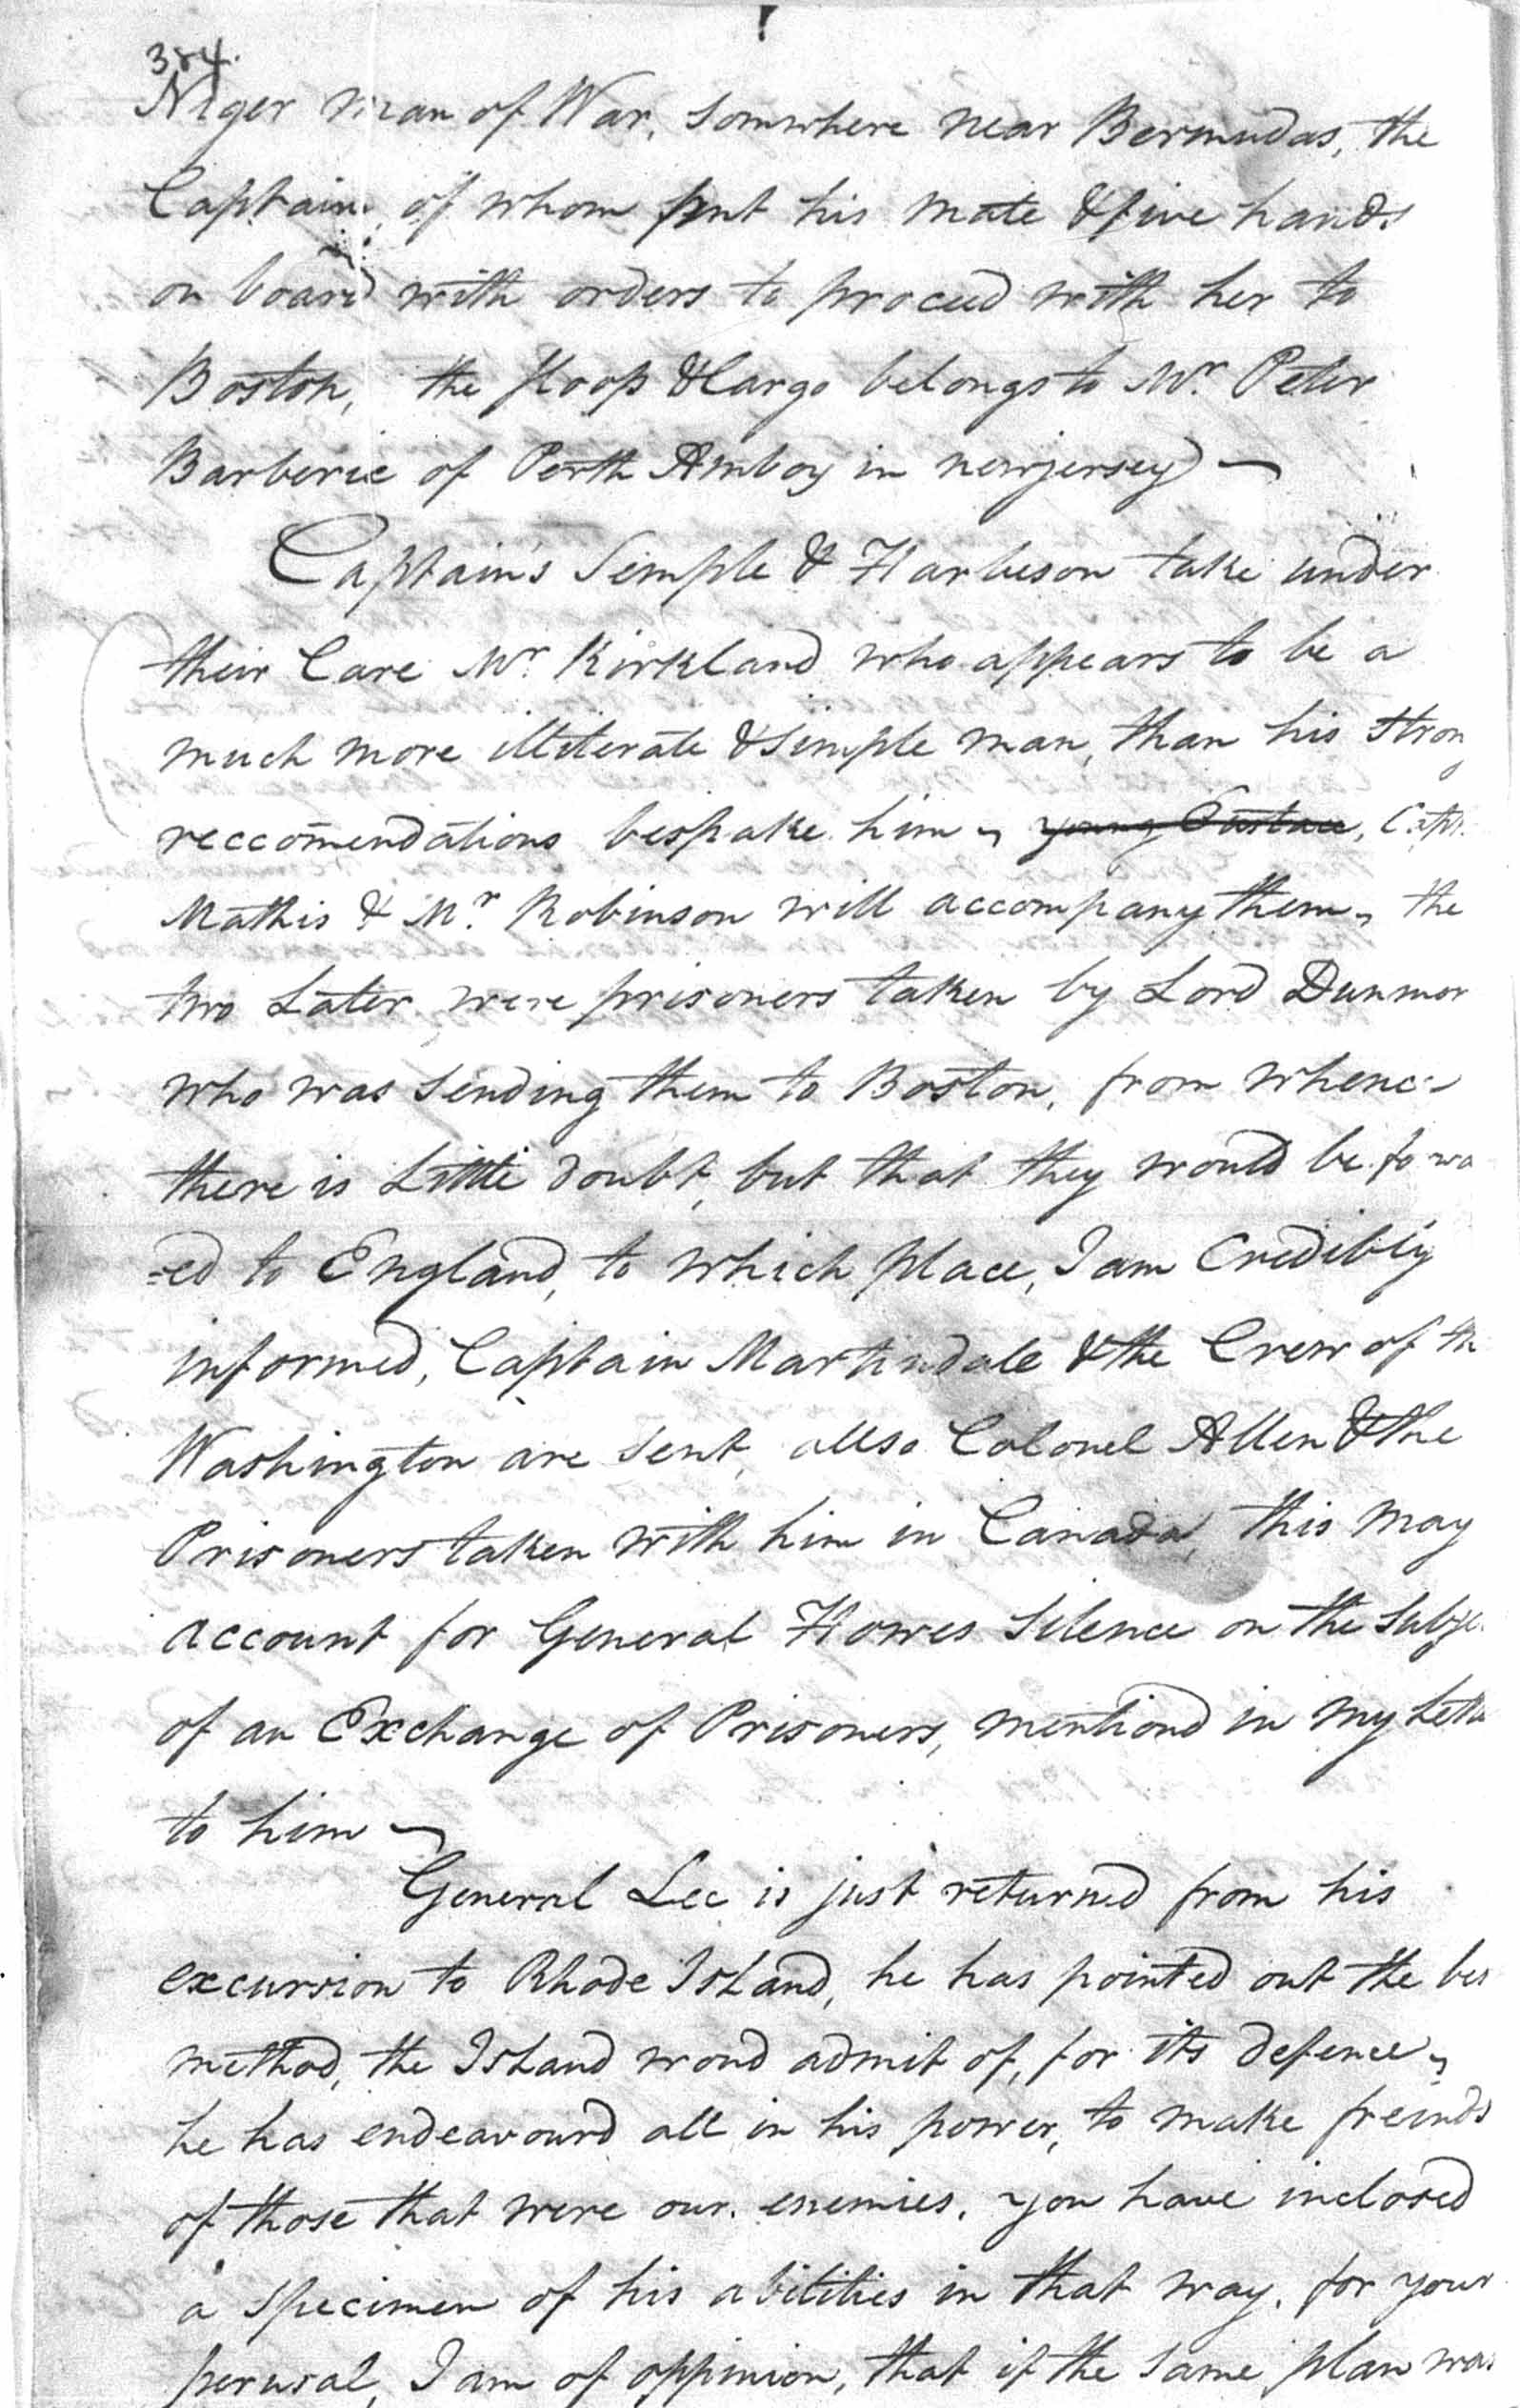 384.
Niger man of War, somwhere near Bermudas, the
Captain, of whom put his mate & five hands
on board with orders to proceed with her to
Boston, the sloop & Cargo belongs to Mr. Peter
Barberie of Perth Amboy in newjersey) —
Captain's Semple & Harbeson take under
their Care Mr. Kirkland who appears to be a
much more illiterate & simple man, than his Stron
reccomendations bespake him, young Eustace, Capt.
Mathis & Mr. Robinson will accompany them, the
two Later were prisoners taken by Lord Dunmor
who was sending them to Boston, from whenc
there is Little doubt, but that they would be forwa
=ed to England, to which place, I am Credibly
informed, Captain Martindale & the Crew of th
Washington are sent, allso Colonel Allen & the
Prisoners taken with him in Canada, this may
account for General Howes Silence on the Subje
of an Exchange of Prisoners, mentiond in my Lette
to him —
General Lee is just returned from his
excursion to Rhode Island, he has pointed out the bes
method, the Island woud admit of, for its defence,
he has endeavourd all in his power, to make freinds
of those that were our enemies. you have inclosed
a specimen of his abilities in that way, for your
perusal, I am of oppinion, that if the same plan was